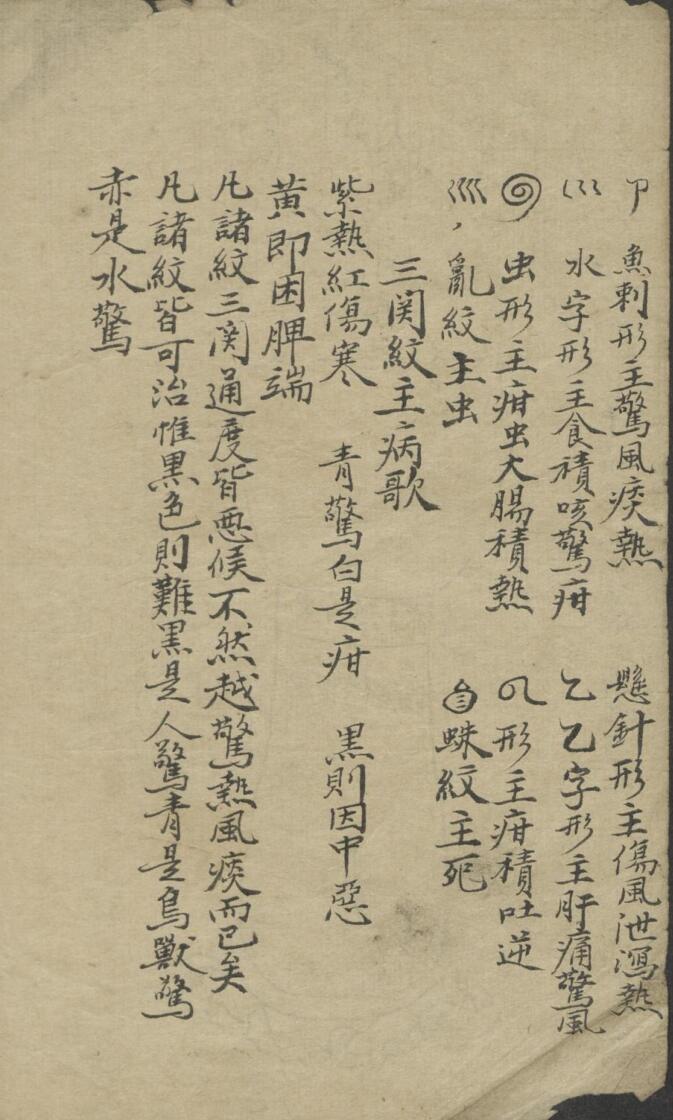 魚刺形主驚風痰熱 懸針形主傷風泄瀉熱
水字形主食積咳驚疳 乙乙字形主肝痛驚風
虫形主疳虫大腸積熱 形主疳積吐逆
亂紋主虫 蛛紋主死
三関紋主病歌
紫熱紅傷寒 青驚白是疳 黒則因中惡
黄即困脾端
凡諸紋三関通度皆悪候不然越驚熱風痰而已矣
凡諸紋皆可治惟黒色則難黒是人驚青是鳥獸驚
赤是水驚